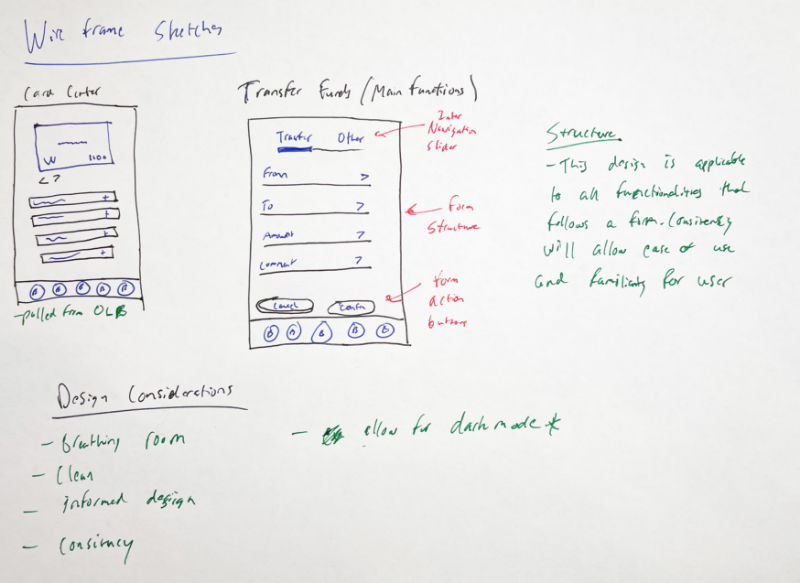 Wire frame Sketches
Card Center
W
< >
+
+
+
+
-pulled from OLB
Transfer Funds (Main Functions)
Transfer Other
From >
To >
Amount >
Comment >
Cancel Confirm
Inter
Navigation
Slider
Form
Structure
Form
action
buttons
Structure
- This design is applicable
to all functionalities that
follows a form. Consistency
will allow ease of use
and familiarity for user
Design Considerations
- Breathing room
- Clean
- Informed design
- Consistency
- allow for dark mode *